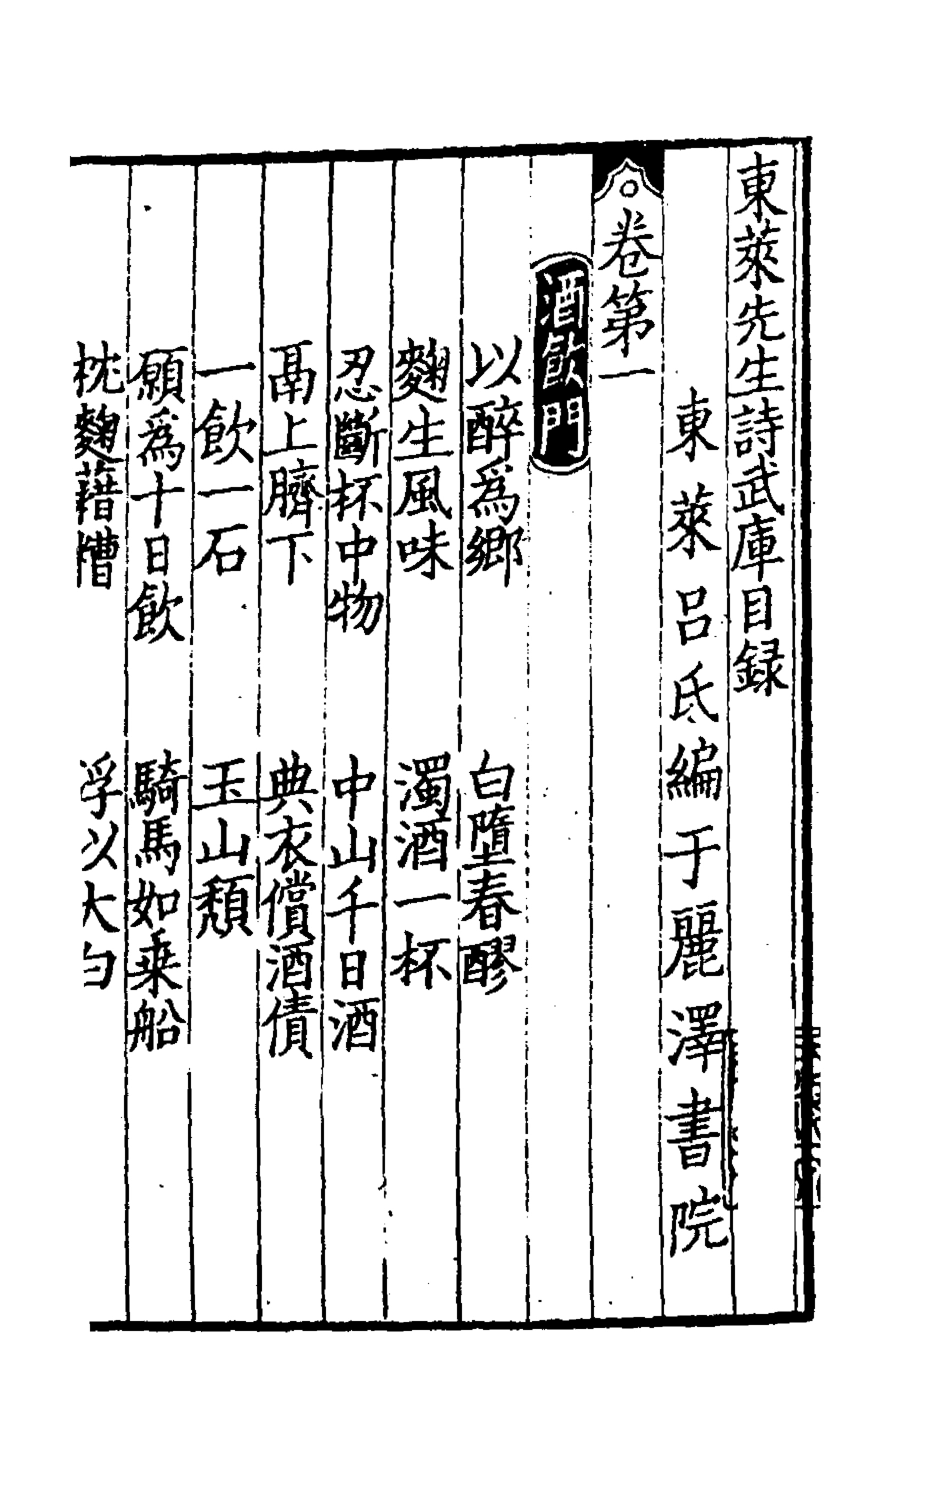 東萊先生詩武庫目録
東萊呂氏編于麗澤書院
卷第一
酒飲門
以醉爲鄉 白墮春醪
麴生風味 濁酒一杯
忍斷杯中物 中山千日酒
鬲上臍下 典衣償酒債
一飲一石 玉山頹
願爲十日飲 騎馬如乗船
枕麴藉糟 浮以大白